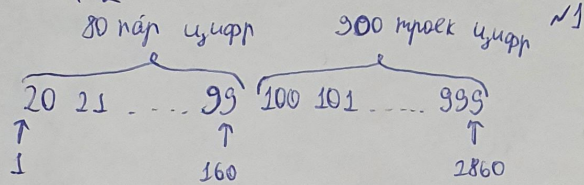 80 пар цифр 900 троек цифр №1
20 21 ..... 99 100 101 ..... 999
1 160 2860